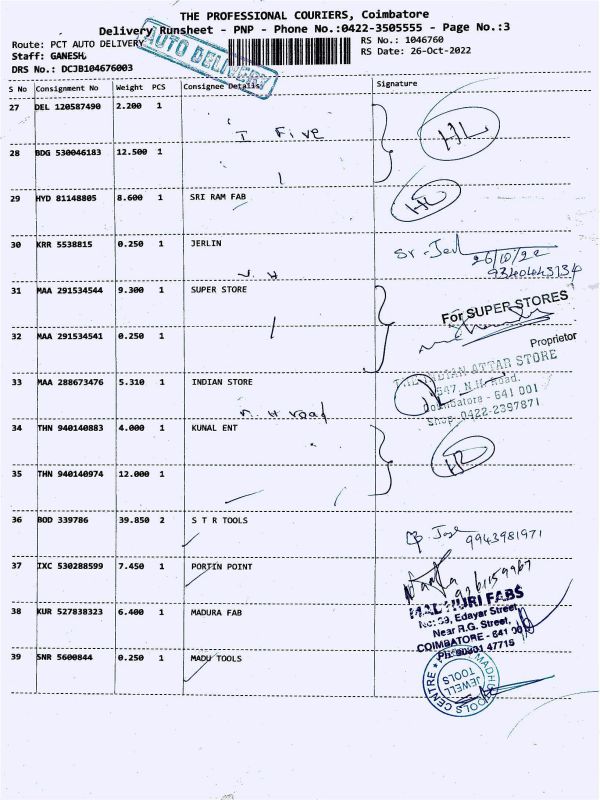 THE PROFESSIONAL COURIERS, Coimbatore
Delivery Runsheet - PNP - Phone No.:0422-3505555 - Page No.:3
Route: PCT AUTO DELIVERY
RS No.: 1046760
Staff: GANESH,
RS Date: 26-Oct-2022
DRS No.: DCJB104676003
AUTO DELIVERY
S No Consignment No Weight PCS Consignee Details Signature
27 DEL 120587490 2.200 1
I Five
28 BDG 530046183 12.500 1
29 HYD 81148805 8.600 1 SRI RAM FAB
30 KRR 5538815 0.250 1 JERLIN
26/10/22
31 MAA 291534544 9.300 1 SUPER STORE
For SUPER STORES
32 MAA 291534541 0.250 1
Proprietor
33 MAA 288673476 5.310 1 INDIAN STORE
THE INDIAN ATTAR STORE
547, N.H. Road,
Coimbatore - 641 001
Shop: 0422-2397871
N. H road
34 THN 940140883 4.000 1 KUNAL ENT
35 THN 940140974 12.000 1
36 BOD 339786 39.850 2 S T R TOOLS
9943981971
37 IXC 530288599 7.450 1 PORTIN POINT
38 KUR 527838323 6.400 1 MADURA FAB
MADHURI FABS
No: 39, Edayar Street,
Near R.G. Street,
COIMBATORE - 641 001
39 SNR 5600844 0.250 1 MADU TOOLS
JEWELL
TOOLS